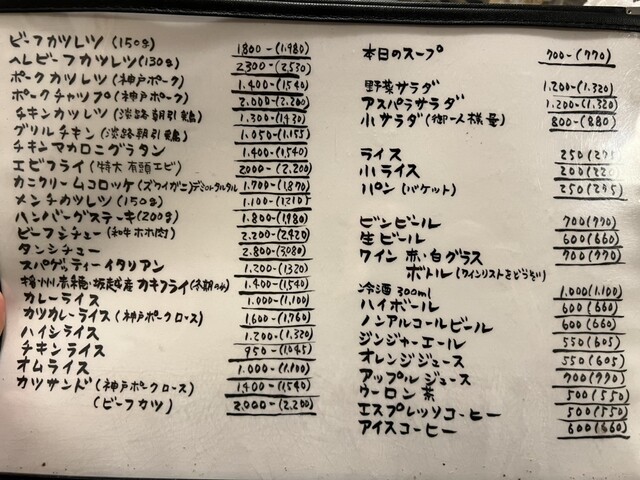 ビーフカツレツ(150g) 1.800-(1.980)
ヘレビーフカツレツ(130g) 2300-(2.530)
ポークカツレツ(神戸ポーク) 1.400-(1540)
ポークチャップ(神戸ポーク) 2.000-(2.200)
チキンカツレツ(淡路朝引鶏) 1.300-(1.430)
グリルチキン(淡路朝引鶏) 1.050-(1.155)
チキンマカロニグラタン 1.400-(1,540)
エビフライ(特大有頭エビ) 2000-(2.200)
カニクリームコロッケ(ズワイガニ)デミorタルタル 1.700-(1,870)
メンチカツレツ(150g) 1.100-(1210)
ハンバーグステーキ(200g) 1.800-(1,980)
ビーフシチュー(和牛ホホ肉) 2.200-(2,420)
タンシチュー 2.800-(3.080)
スパゲッティーイタリアン 1.200-(1320)
播州赤穂・坂越産カキフライ(冬期のみ) 1.400-(1.540)
カレーライス 1.000-(1,100)
カツカレーライス(神戸ポークロース) 1.600-(1,760)
ハイシライス 1.200-(1.320)
チキンライス 950-(1.045)
オムライス 1.000-(1,100)
カツサンド(神戸ポークロース) 1.400-(1,540)
(ビーフカツ) 2.000-(2.200)
本日のスープ 700-(770)
野菜サラダ 1.200-(1.320)
アスパラサラダ 1.200-(1.320)
小サラダ(御一人様量) 800-(880)
ライス 250(275)
小ライス 200(220)
パン(バケット) 250(275)
ビンビール 700(770)
生ビール 600(660)
ワイン 赤・白グラス 700(770)
ボトル(ワインリストをどうぞ)
冷酒 300ml 1.000(1.100)
ハイボール 600(660)
ノンアルコールビール 600(660)
ジンジャーエール 550(605)
オレンジジュース 550(605)
アップルジュース 700(770)
ウーロン茶 500(550)
エスプレッソコーヒー 500(550)
アイスコーヒー 600(660)